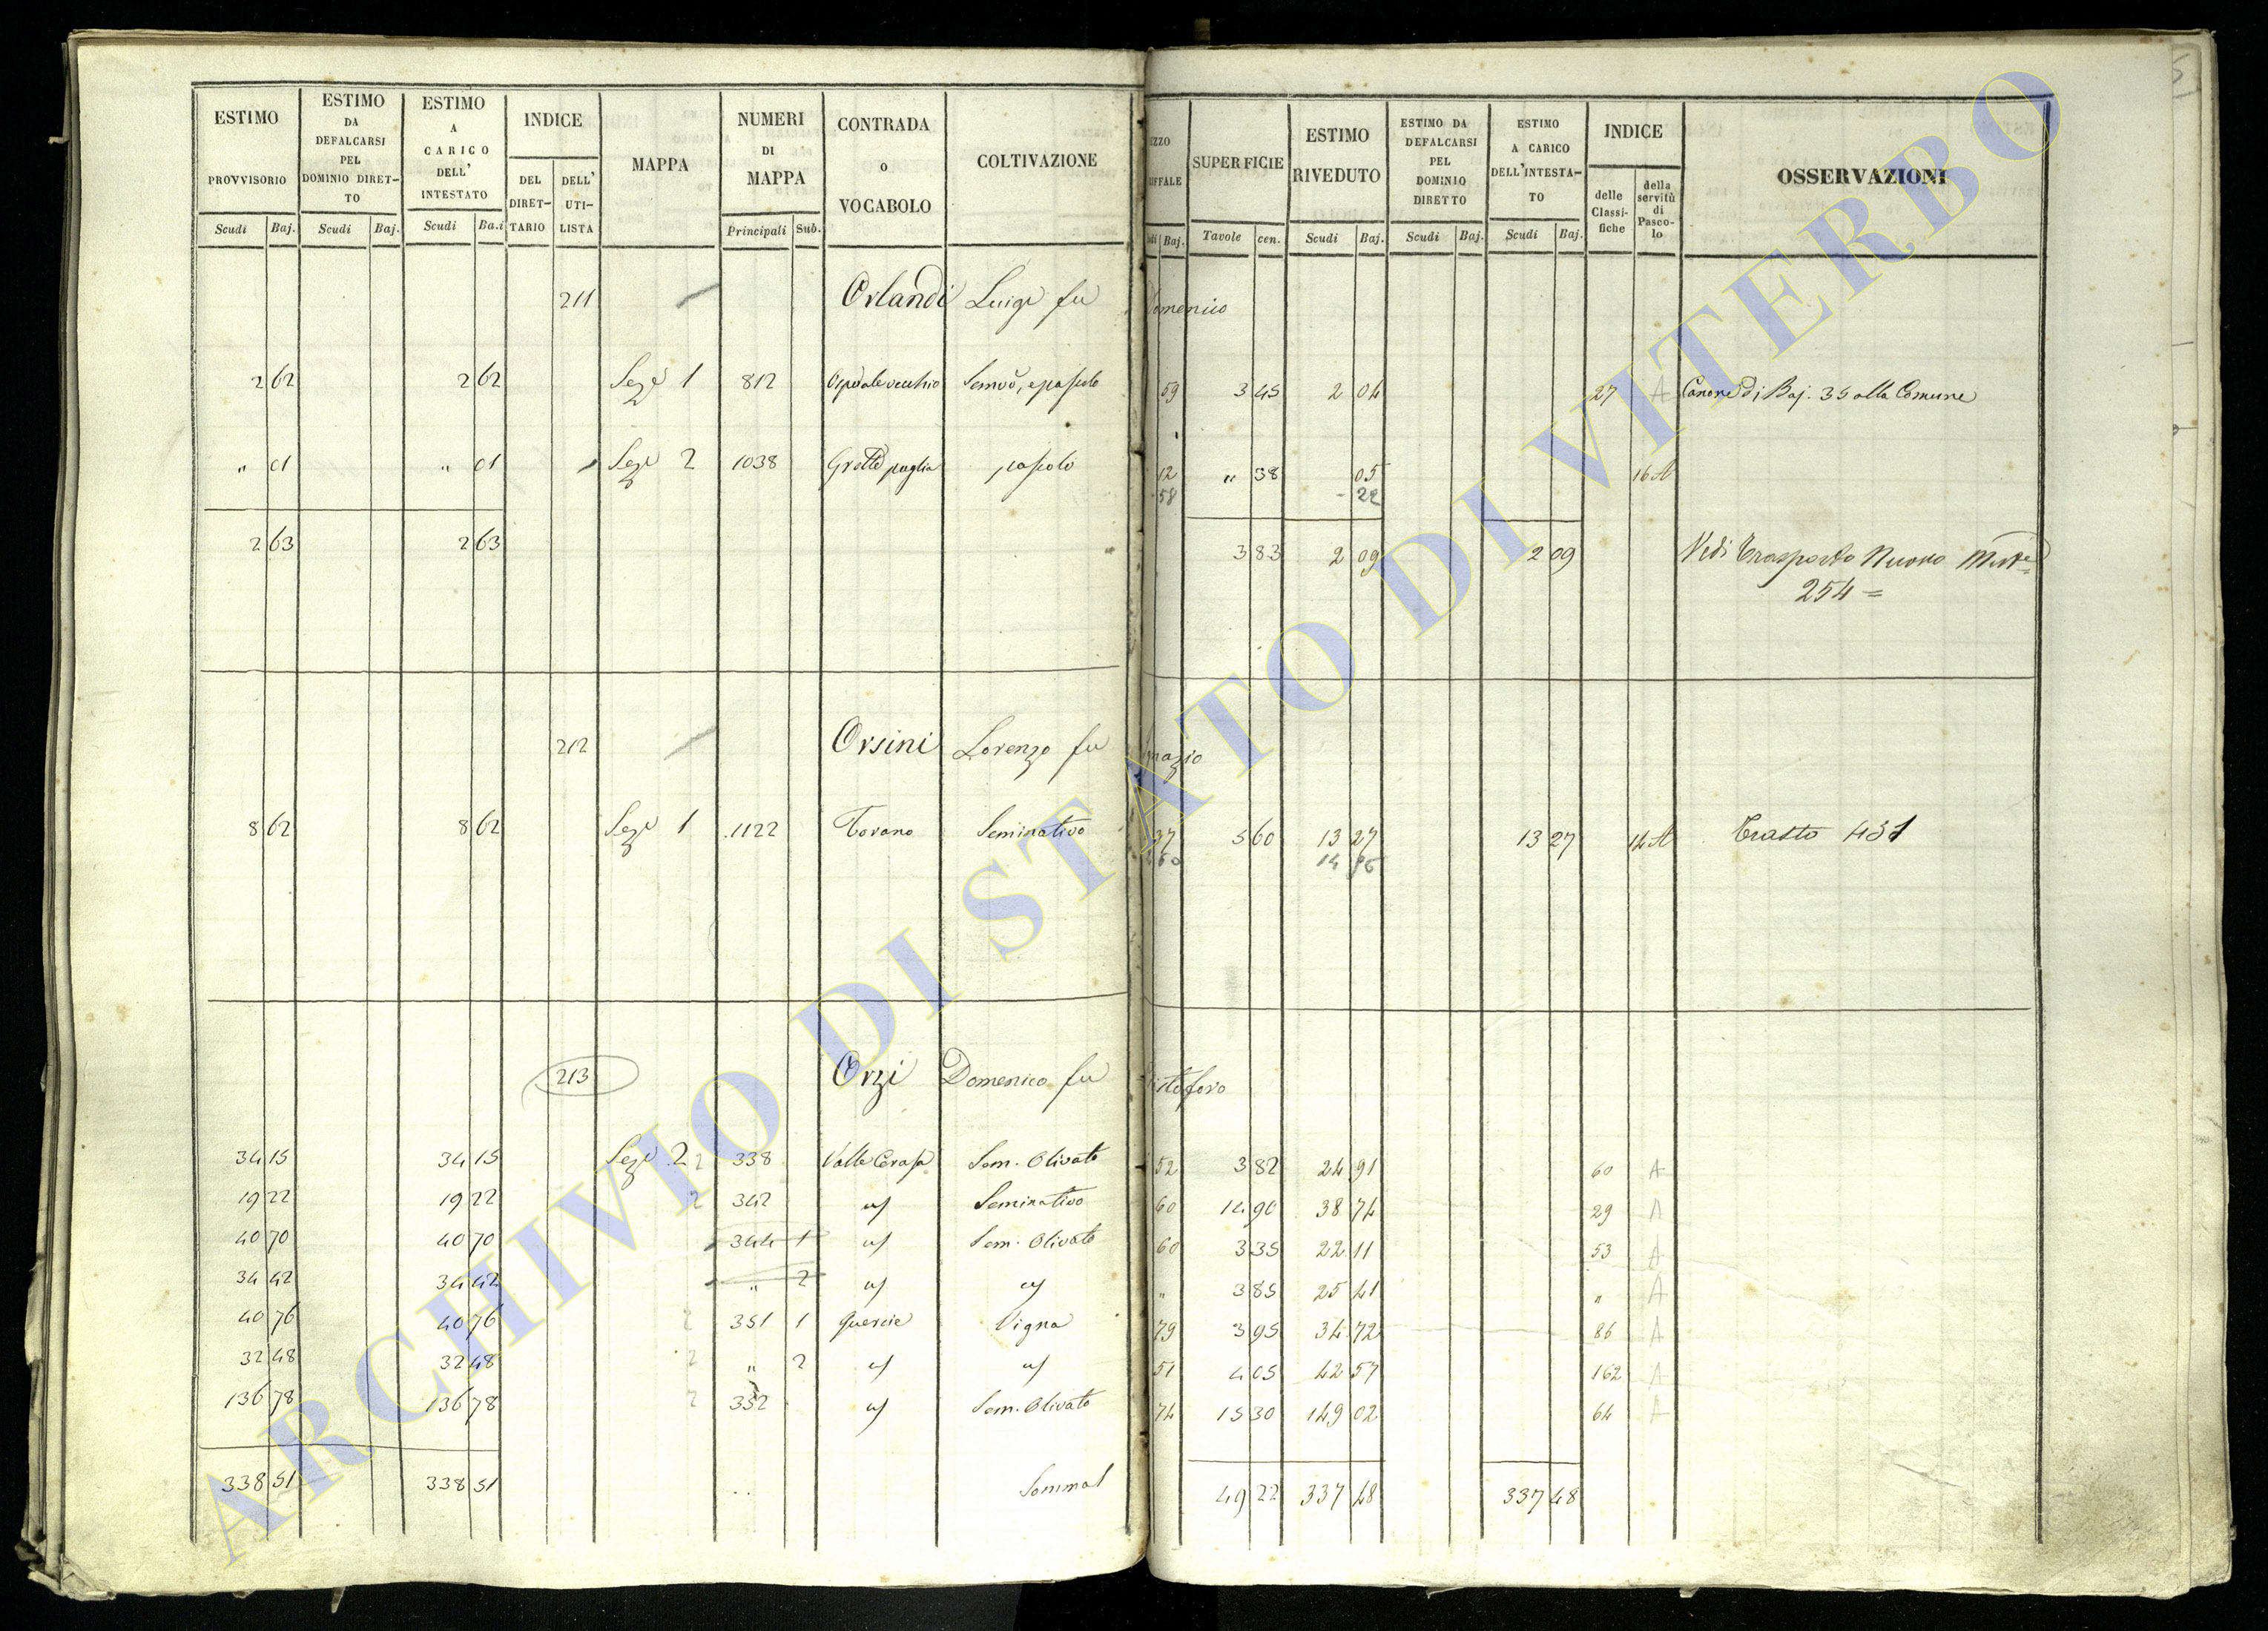 ESTIMO PROVVISORIO Scudi Baj. | ESTIMO DA DEFALCARSI PEL DOMINIO DIRET-TO Scudi Baj. | ESTIMO A CARICO DELL' INTESTATO Scudi Ba.i | INDICE DEL DIRET-TARIO | DELL' UTI-LISTA | MAPPA | NUMERI DI MAPPA Principali Sub. | CONTRADA o VOCABOLO | COLTIVAZIONE | SUPERFICIE Tavole cen. | ESTIMO RIVEDUTO Scudi Baj. | ESTIMO DA DEFALCARSI PEL DOMINIO DIRETTO Scudi Baj. | ESTIMO A CARICO DELL'INTESTA-TO Scudi Baj. | INDICE delle Classi-fiche | della servitù di Pasco-lo | OSSERVAZIONI
211 Orlandi Luigi fu Domenico
2 62 2 62 Sez. 1 812 Ospedale vecchio Semvo, e pascolo 59 3 45 2 04 27 A Canone di Baj. 35 alla Comune
" 01 " 01 Sez. 2 1038 Grotte puglia pascolo 12 " 38 05 16 A
58 - 22
2 63 2 63 3 83 2 09 2 09 Vedi Trasporto Nuovo
254 =
212 Orsini Lorenzo fu
8 62 8 62 Sez. 1 1122 Torano Seminativo 37 5 60 13 27 13 27 14 A Trasto 431
213 Orzi Domenico fu istoforo
34 15 34 15 Sez. 2 2 338 Valle Cerasa Sem. Olivato 52 3 82 24 91 60 A
19 22 19 22 2 342 Seminativo 60 14 90 38 74 29 A
40 70 40 70 344 1 Sem. Olivato 60 3 35 22 11 53 A
34 42 34 42 " 2 " 3 85 25 41 " A
40 76 40 76 2 351 1 Quercie Vigna 79 3 95 34 72 86 A
32 48 32 48 2 " 2 51 4 05 42 57 162 A
136 78 136 78 2 352 Sem. Olivato 74 15 30 149 02 64 A
338 51 338 51 Somma 49 22 337 48 337 48
ARCHIVIO DI STATO DI VITERBO